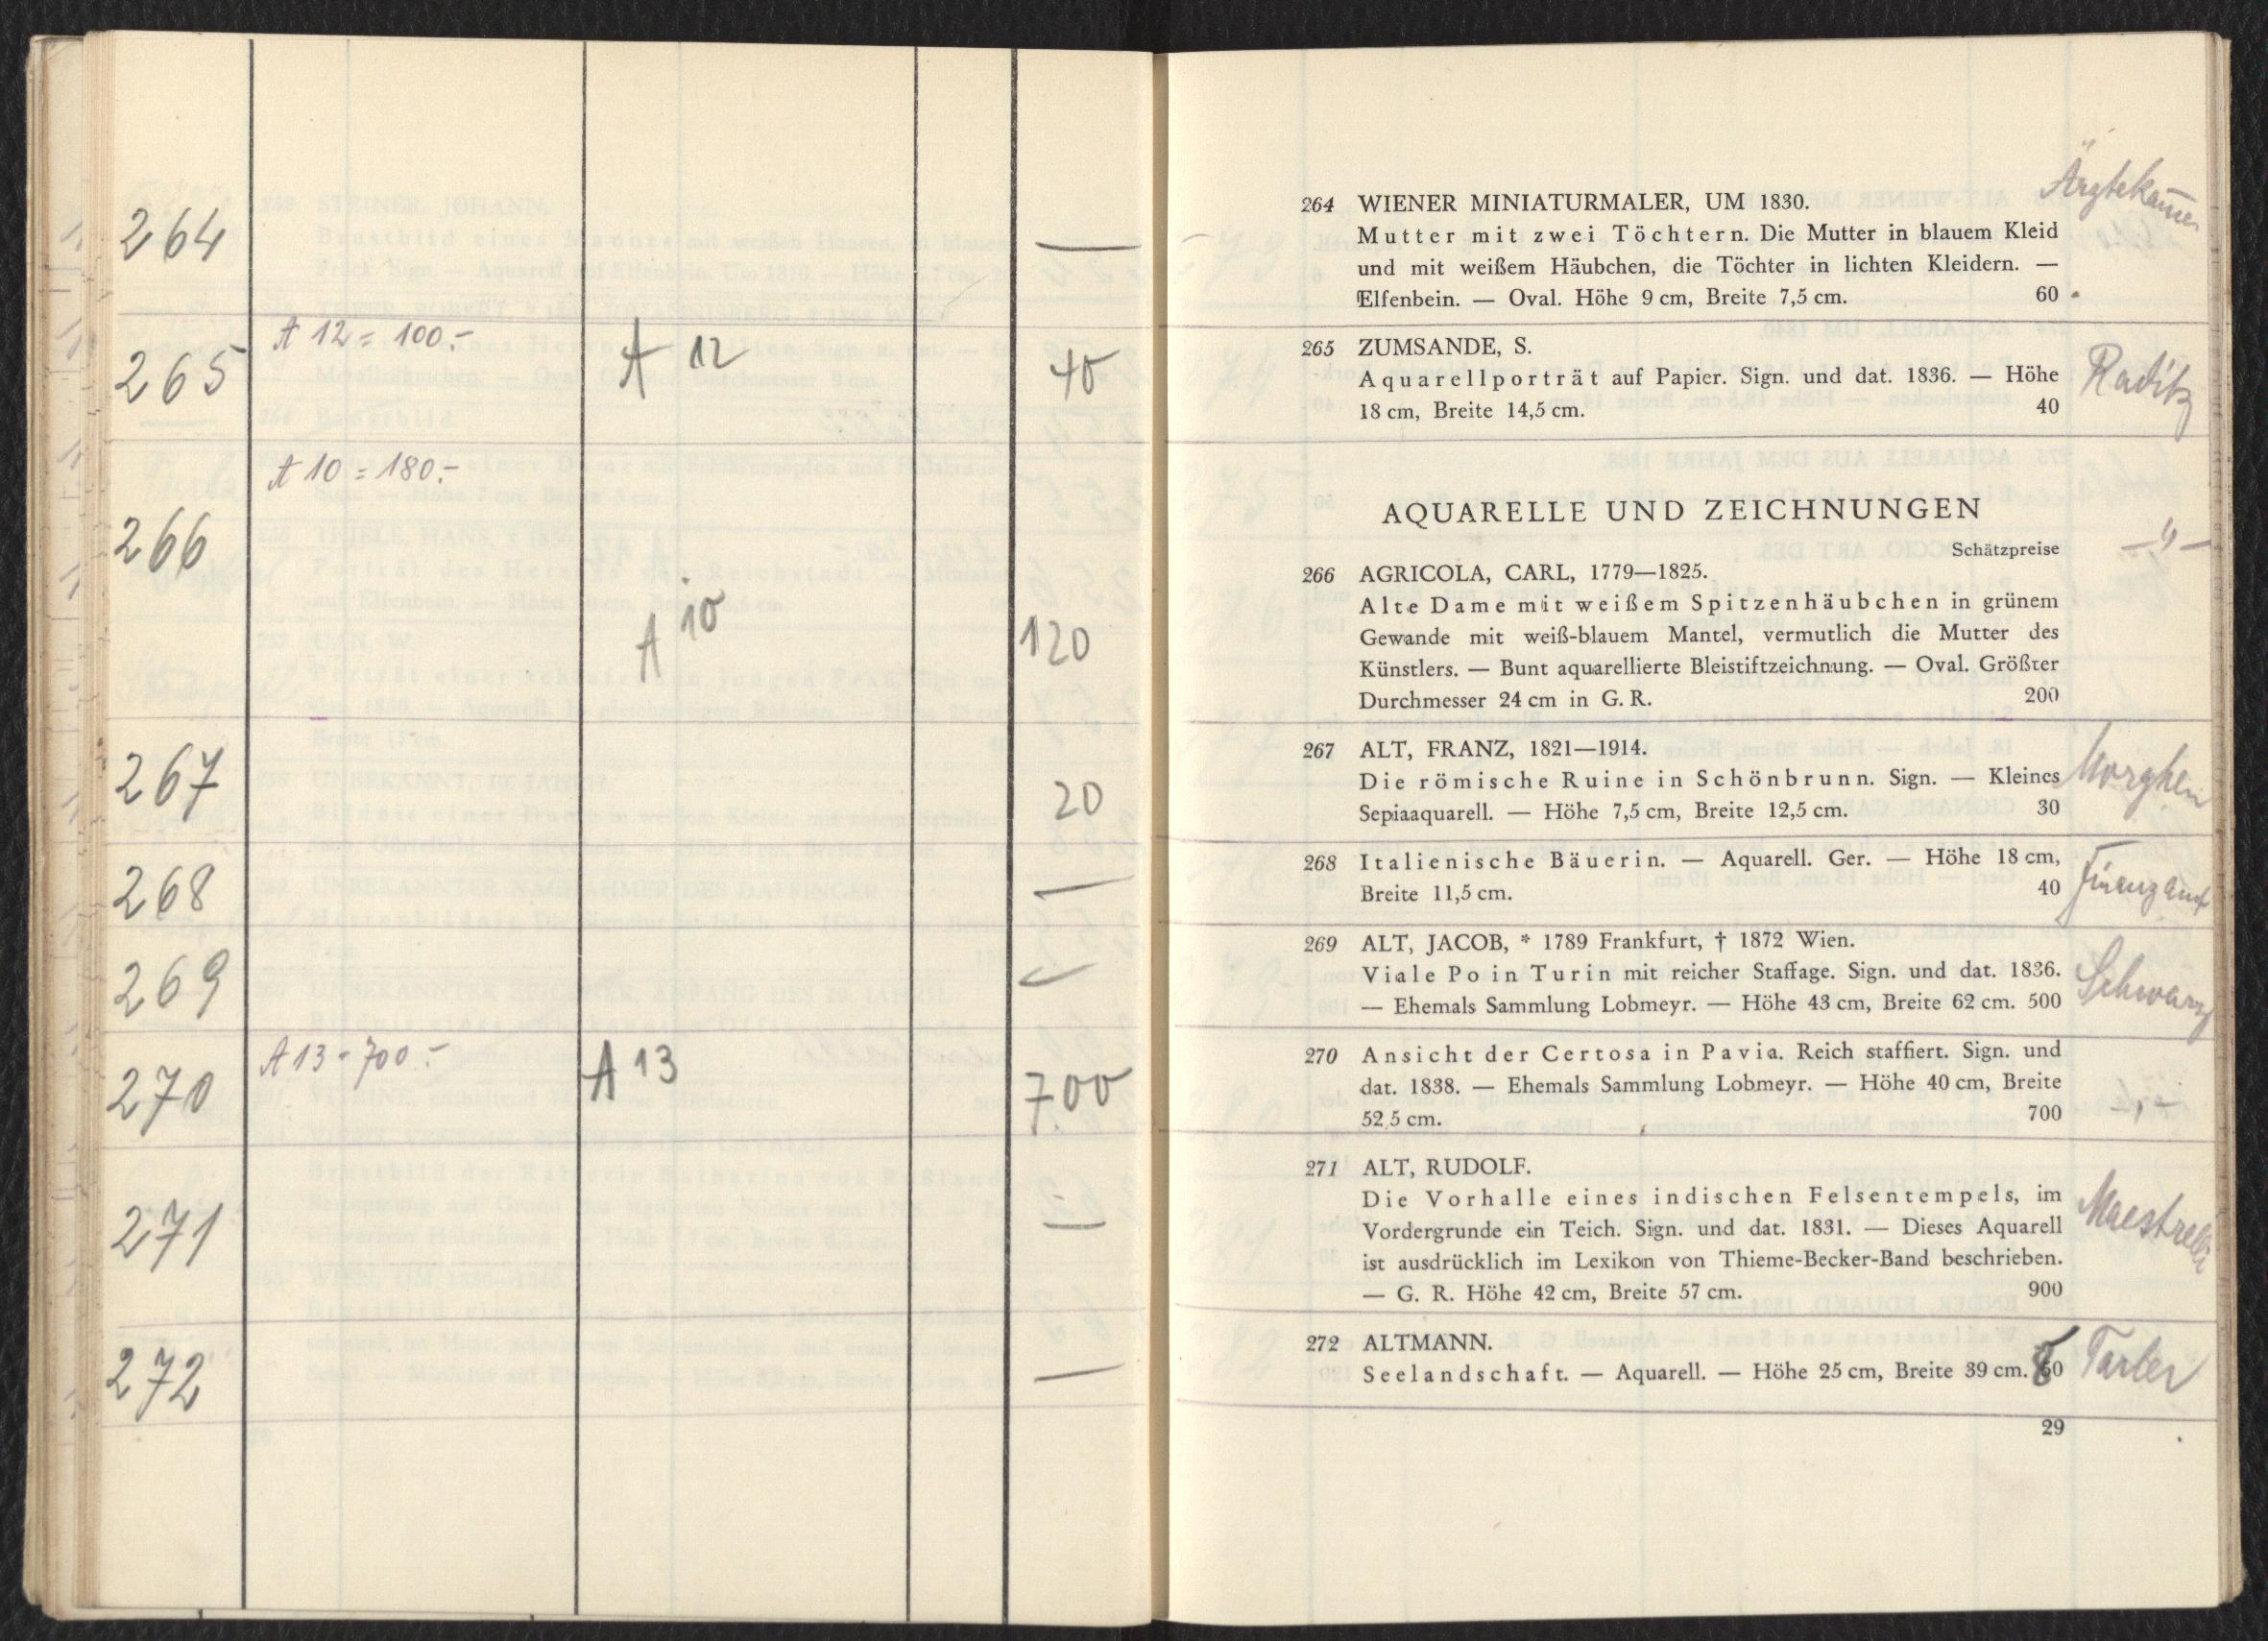 264
—
A 12 = 100.-
265
A 12
40
A 10 = 180.-
266
A 10
120
267
20
268
—
269
A 13 = 700.-
270
A 13
700
271
—
272
—
Ärztekammer
264 WIENER MINIATURMALER, UM 1830.
Mutter mit zwei Töchtern. Die Mutter in blauem Kleid
und mit weißem Häubchen, die Töchter in lichten Kleidern. —
Elfenbein. — Oval. Höhe 9 cm, Breite 7,5 cm. 60
265 ZUMSANDE, S.
Aquarellporträt auf Papier. Sign. und dat. 1836. — Höhe
18 cm, Breite 14,5 cm. 40
Raditz
AQUARELLE UND ZEICHNUNGEN
Schätzpreise
266 AGRICOLA, CARL, 1779—1825.
Alte Dame mit weißem Spitzenhäubchen in grünem
Gewande mit weiß-blauem Mantel, vermutlich die Mutter des
Künstlers. — Bunt aquarellierte Bleistiftzeichnung. — Oval. Größter
Durchmesser 24 cm in G. R. 200
267 ALT, FRANZ, 1821—1914.
Die römische Ruine in Schönbrunn. Sign. — Kleines
Sepiaaquarell. — Höhe 7,5 cm, Breite 12,5 cm. 30
Morghen
268 Italienische Bäuerin. — Aquarell. Ger. — Höhe 18 cm,
Breite 11,5 cm. 40
Finanzamt
269 ALT, JACOB, * 1789 Frankfurt, † 1872 Wien.
Viale Po in Turin mit reicher Staffage. Sign. und dat. 1836.
— Ehemals Sammlung Lobmeyr. — Höhe 43 cm, Breite 62 cm. 500
Schwarz
270 Ansicht der Certosa in Pavia. Reich staffiert. Sign. und
dat. 1838. — Ehemals Sammlung Lobmeyr. — Höhe 40 cm, Breite
52,5 cm. 700
271 ALT, RUDOLF.
Die Vorhalle eines indischen Felsentempels, im
Vordergrunde ein Teich. Sign. und dat. 1831. — Dieses Aquarell
ist ausdrücklich im Lexikon von Thieme-Becker-Band beschrieben.
— G. R. Höhe 42 cm, Breite 57 cm. 900
Maestrelli
272 ALTMANN.
Seelandschaft. — Aquarell. — Höhe 25 cm, Breite 39 cm. 80
29